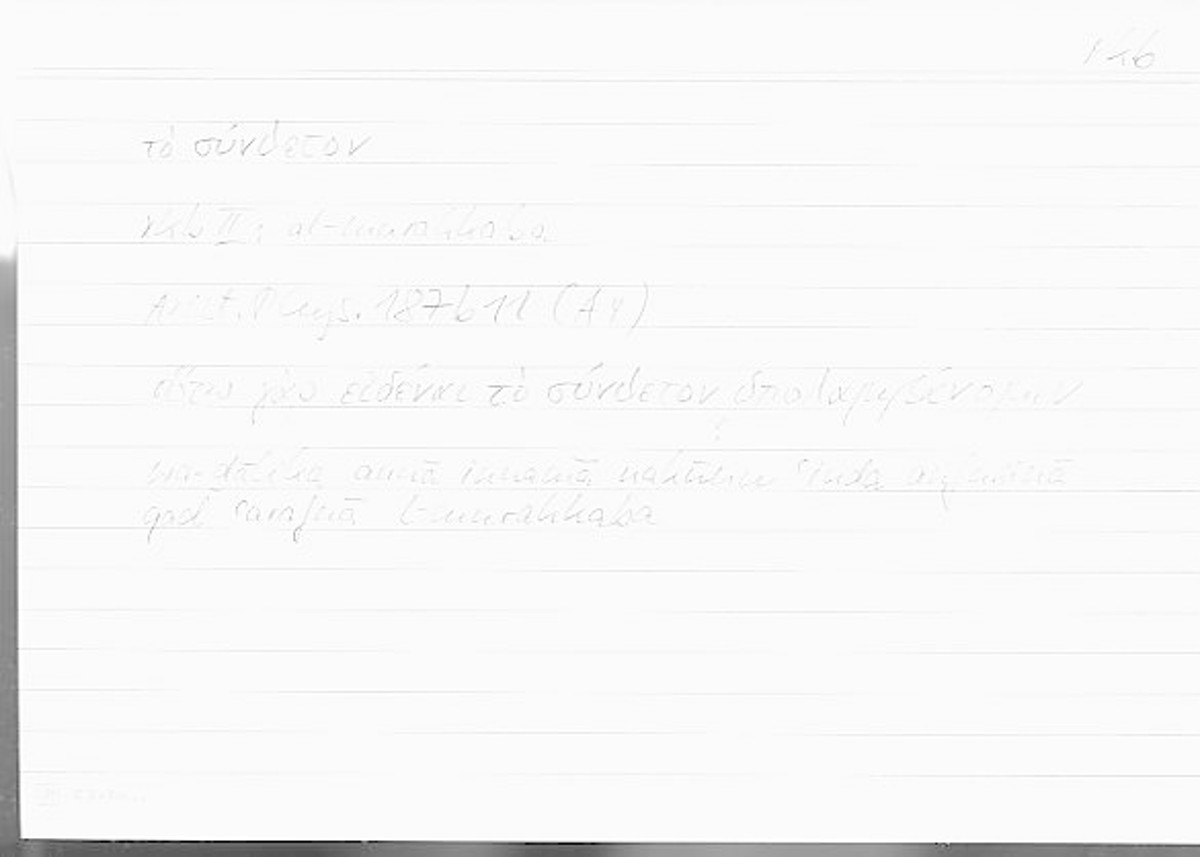 rkb
τὸ σύνθετον
rkb II: al-murakkaba
Arist. Phys. 187b11 (A4)
οὕτω γὰρ εἰδέναι τὸ σύνθετον ὑπολαμβάνομεν
wa-ḏālika annā innamā nakūnu ʿinda anfusinā
qad ʿarafnā l-murakkaba